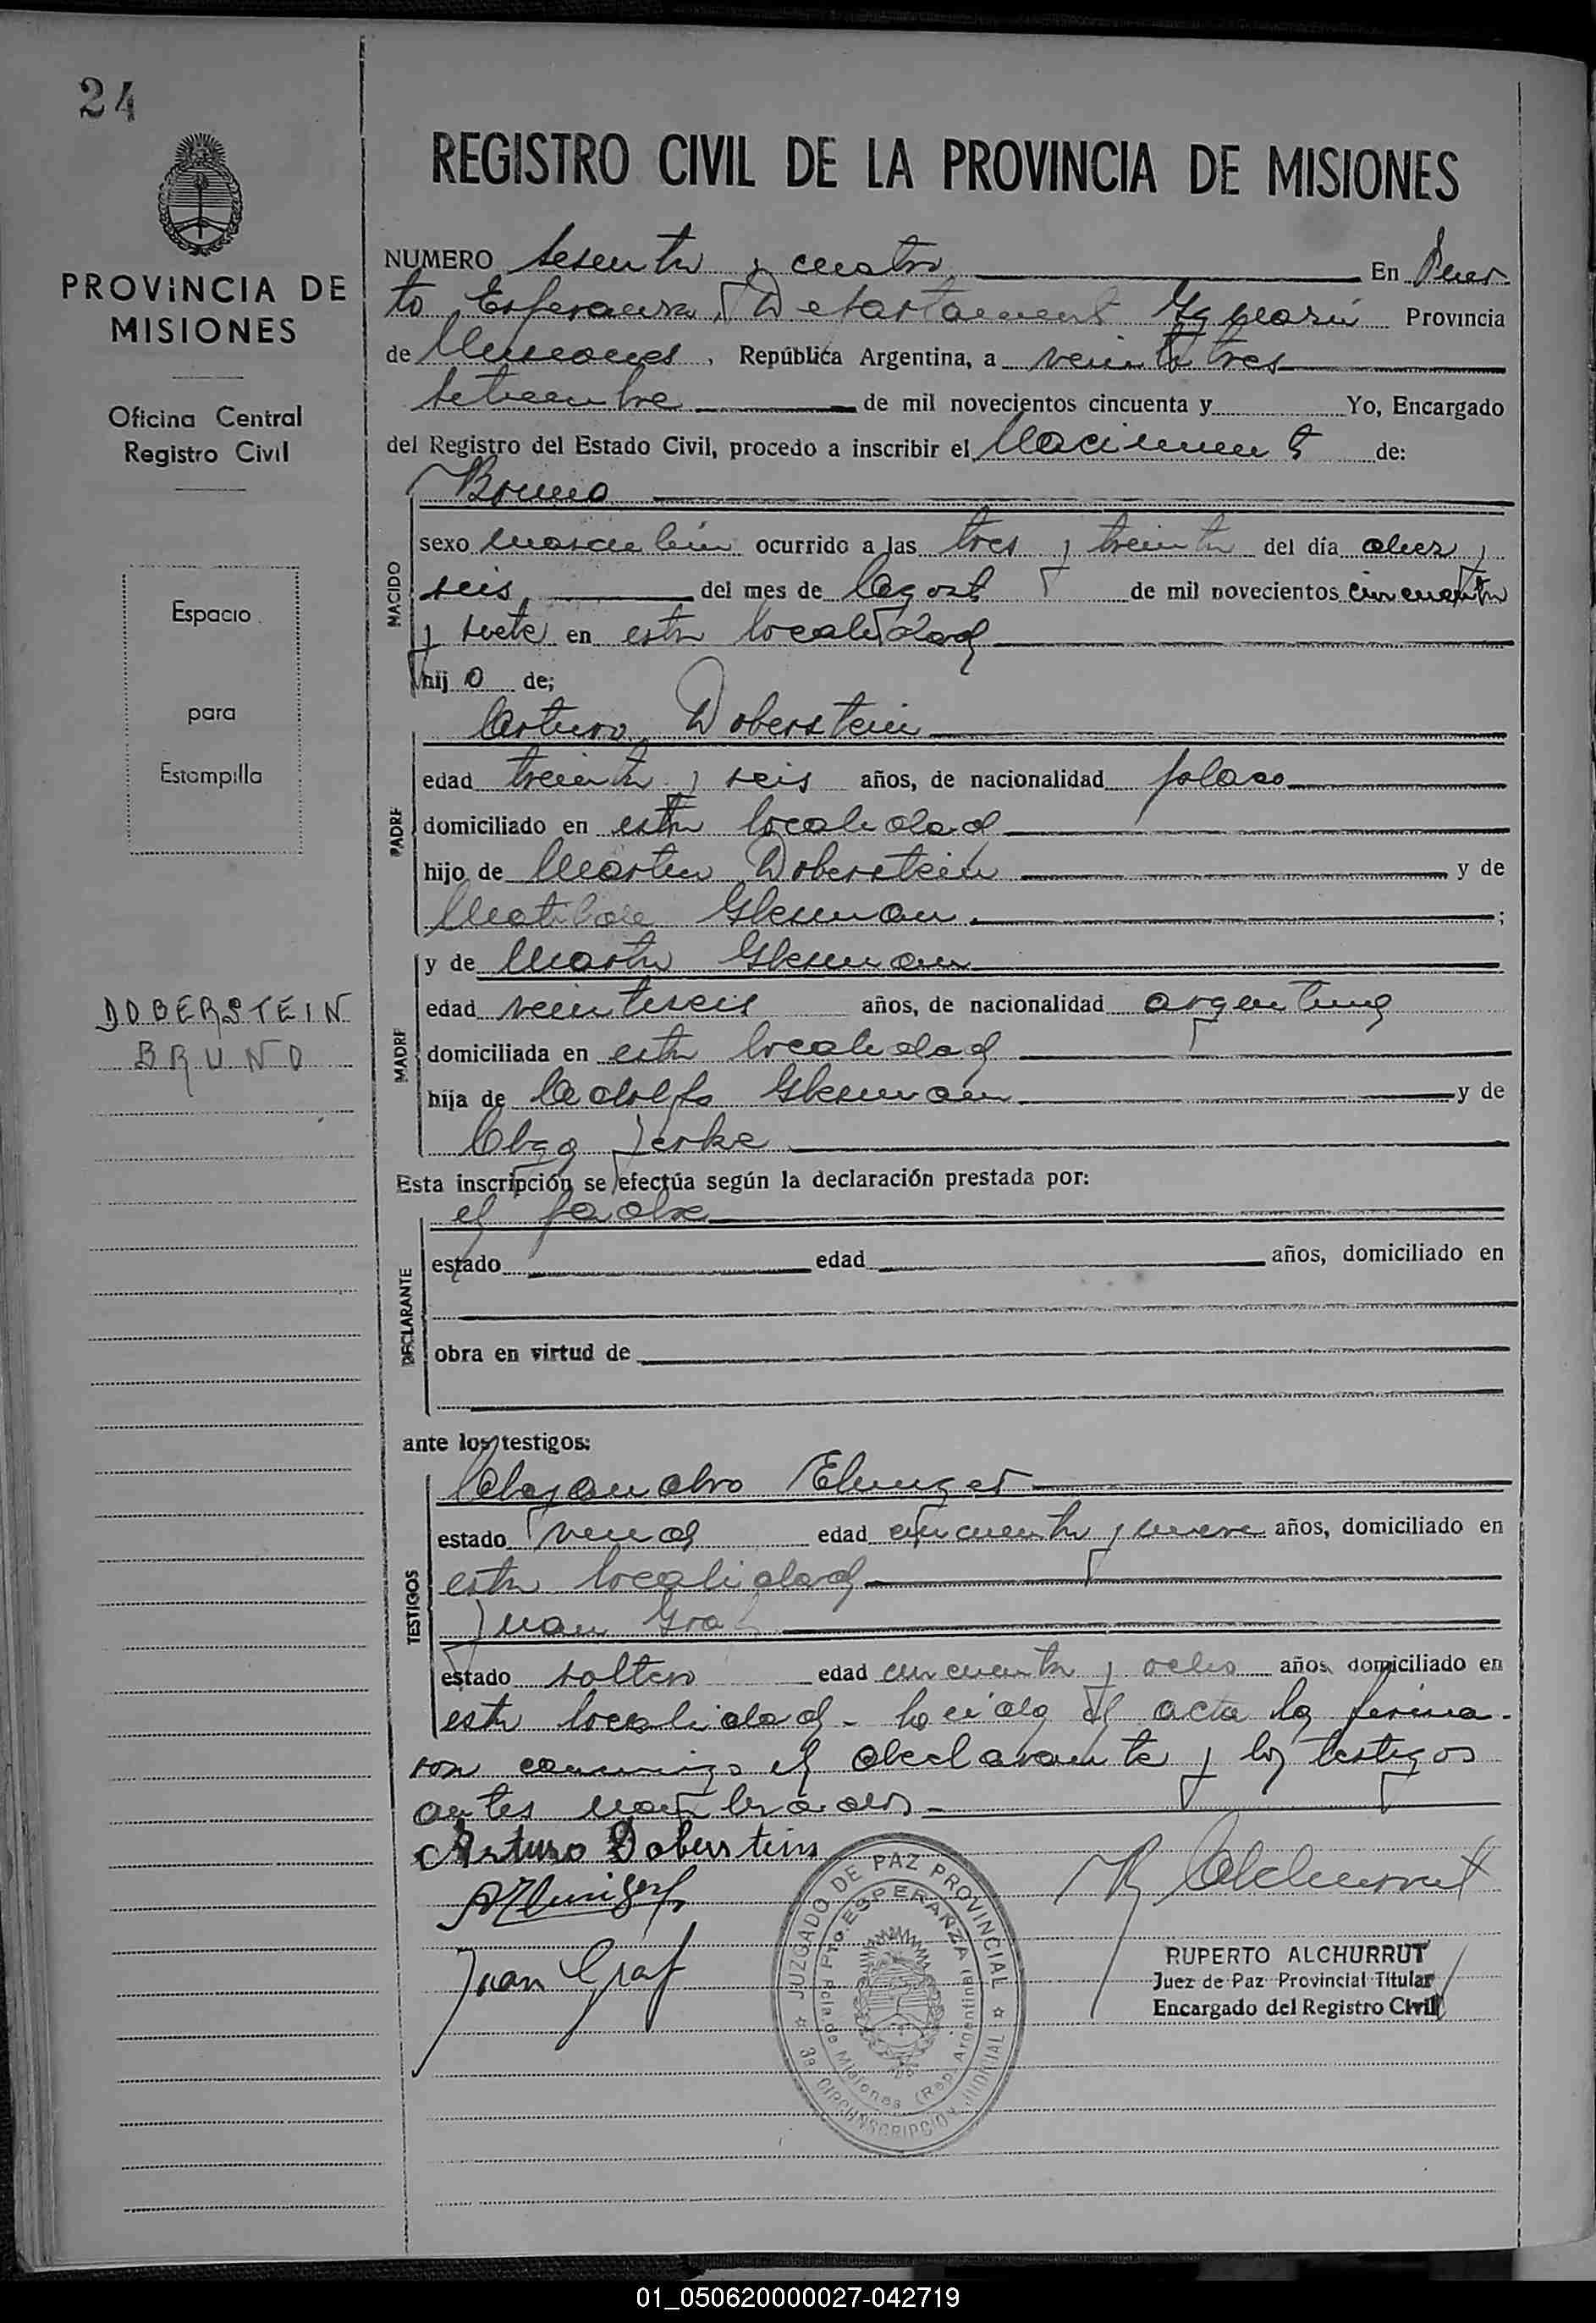 24
PROVINCIA DE
MISIONES
Oficina Central
Registro Civil
Espacio
para
Estampilla
DOBERSTEIN
BRUNO
REGISTRO CIVIL DE LA PROVINCIA DE MISIONES
NUMERO Sesenta y cuatro En Puer
to Esperanza, Departamento Iguazú Provincia
de Misiones, República Argentina, a veintitres
setiembre de mil novecientos cincuenta y Yo, Encargado
del Registro del Estado Civil, procedo a inscribir el Nacimiento de:
Bruno
NACIDO
sexo masculino ocurrido a las tres y treinta del día diez y
seis del mes de Agosto de mil novecientos cincuenta
y siete en esta localidad
hij o de;
Arturo Doberstein
PADRE
edad treinta y seis años, de nacionalidad polaco
domiciliado en esta localidad
hijo de Martin Doberstein y de
Matilde ;
y de Marta
MADRE
edad veintiseis años, de nacionalidad argentina
domiciliada en esta localidad
hija de Adolfo y de
Olga
Esta inscripción se efectúa según la declaración prestada por:
el padre
DECLARANTE
estado edad años, domiciliado en
obra en virtud de
ante los testigos:
Alejandro
TESTIGOS
estado edad cincuenta y nueve años, domiciliado en
esta localidad
Juan Graf
estado soltero edad cincuenta y ocho años domiciliado en
esta localidad - Leída el acta la firma-
ron conmigo el declarante y los testigos
antes nombrados -
Arturo Doberstein
Juan Graf
JUZGADO DE PAZ PROVINCIAL
Pto. ESPERANZA
3a CIRCUNSCRIPCION JUDICIAL
RUPERTO ALCHURRUT
Juez de Paz Provincial Titular
Encargado del Registro Civil
01_050620000027-042719